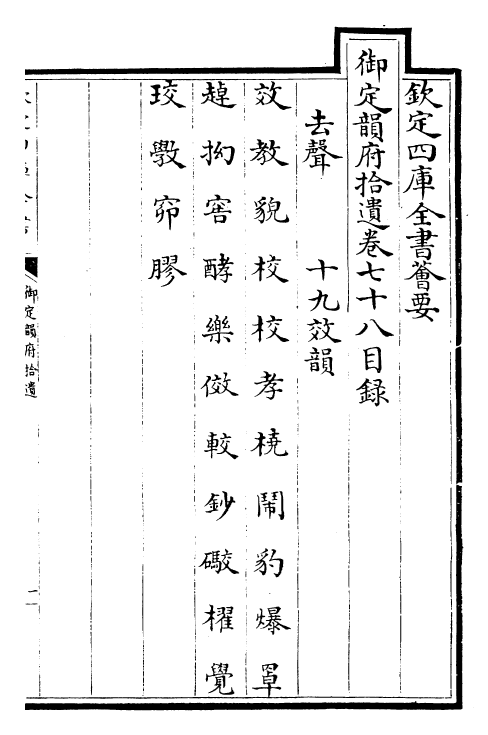 欽定四庫全書薈要
御定韻府拾遺卷七十八目録
去聲　十九效韻
效教貌校校孝橈鬧豹爆罩
趠拗窖酵樂傚較鈔礮櫂覺
珓斆窌膠
御定韻府拾遺
一